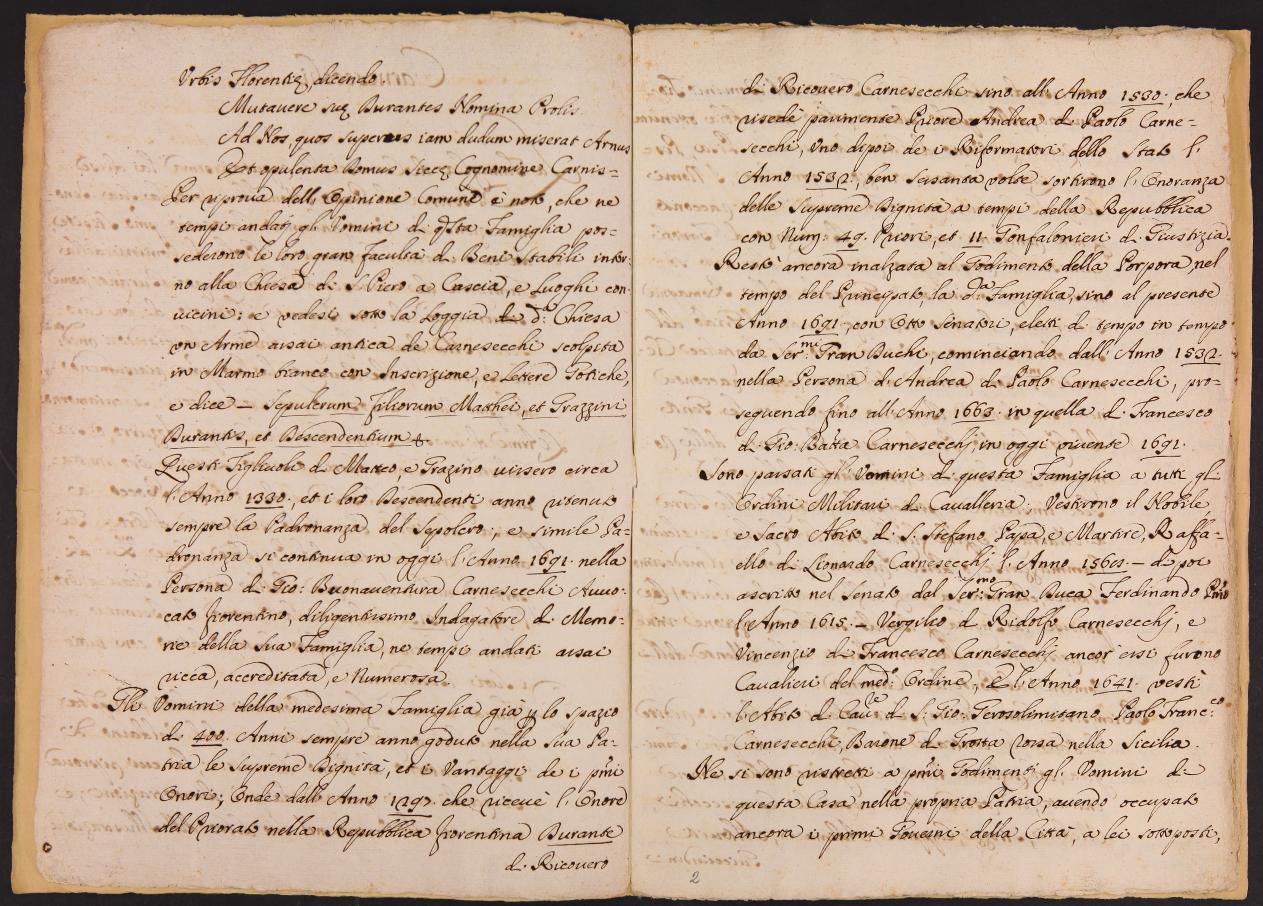 Urbis Florentię, dicendo
Mutavere suę Durantes Nomina Prolis
Ad Nos, quos superus iam dudum miserat Arnus
Tot opulenta Domus siccę Cognomine Carnis =
Per riprova dell'Opinione Comune è noto, che ne
tempi andati gl'Uomini di qsta Famiglia pos=
sederono le loro gran facultà di Beni Stabili intor=
no alla Chiesa di S. Piero a Cascia, e Luoghi con
vicini: e vedesi sotto la Loggia di d.a Chiesa
un Arme assai antica de Carnesecchi scolpita
in Marmo bianco con Inscrizione, e Lettere Gotiche,
e dice — Sepulcrum filiorum Matthei, et Grazzini
Durantis, et Descendentium
Questi Figliuoli di Matteo, e Grazino vissero circa
l'Anno 1330. et i loro Descendenti anno ritenuto
sempre la Padronanza del Sepolcro; e simile Pa=
dronanza si continua in oggi l'Anno 1691. nella
Persona di Gio: Buonaventura Carnesecchi Avvo=
cato fiorentino, diligentissimo Indagatore di Memo=
rie della sua Famiglia, ne tempi andati assai
ricca, accreditata, e Numerosa.
Gli Uomini della medesima Famiglia già p lo spazio
di 400. Anni sempre anno goduto nella sua Pa=
tria le supreme Dignità, et i Vantaggi de i pmi
Onori; Onde dall'Anno 1297. che ricevè l'Onore
del Priorato nella Repubblica fiorentina Durante
di Ricovero
di Ricovero Carnesecchi sino all'Anno 1530. che
risedè parimente Priore Andrea di Paolo Carne=
secchi, uno dipoi de i Riformatori dello Stato l'
Anno 1532., ben sessanta volte sortirono l'Onoranza
delle supreme Dignità a tempi della Repubblica
con Num: 49. Priori, et 11. Gonfalonieri di Giustizia.
Restò ancora inalzata al Godimento della Porpora, nel
tempo del Principato la d.a Famiglia, sino al presente
Anno 1691., con Otto Senatori, eletti di tempo in tempo
da Ser.mi Gran Duchi, cominciando dall'Anno 1532.
nella Persona d'Andrea di Paolo Carnesecchi, pro=
seguendo fino all'Anno 1663. in quella di Francesco
di Gio: Batta Carnesecchi, in oggi vivente 1691.
Sono passati gl'Uomini di questa Famiglia a tutti gl'
Ordini Militari di Cavalleria; Vestirono il Nobile,
e Sacro Abito di S. Stefano Papa, e Martire, Raffa=
ello di Lionardo Carnesecchj l'Anno — di poi
ascritto nel Senato dal Ser.mo Gran Duca Ferdinando Pmo
l'Anno 1615. — Vergilio di Ridolfo Carnesecchj, e
Vincenzio di Francesco Carnesecchj ancor'essi furono
Cavalieri del med: Ordine, E l'Anno 1641. vestì
l'Abito di Cav.le di S. Gio: Gerosolimitano Paolo Franc.co
Carnesecchi, Barone di Grotta rossa nella Sicilia.
Ne si sono ristretti a pmi Godimenti gl'Uomini di
questa Casa nella propria Patria, avendo occupato
ancora i primi Governi della Città, a lei sottoposti,
2